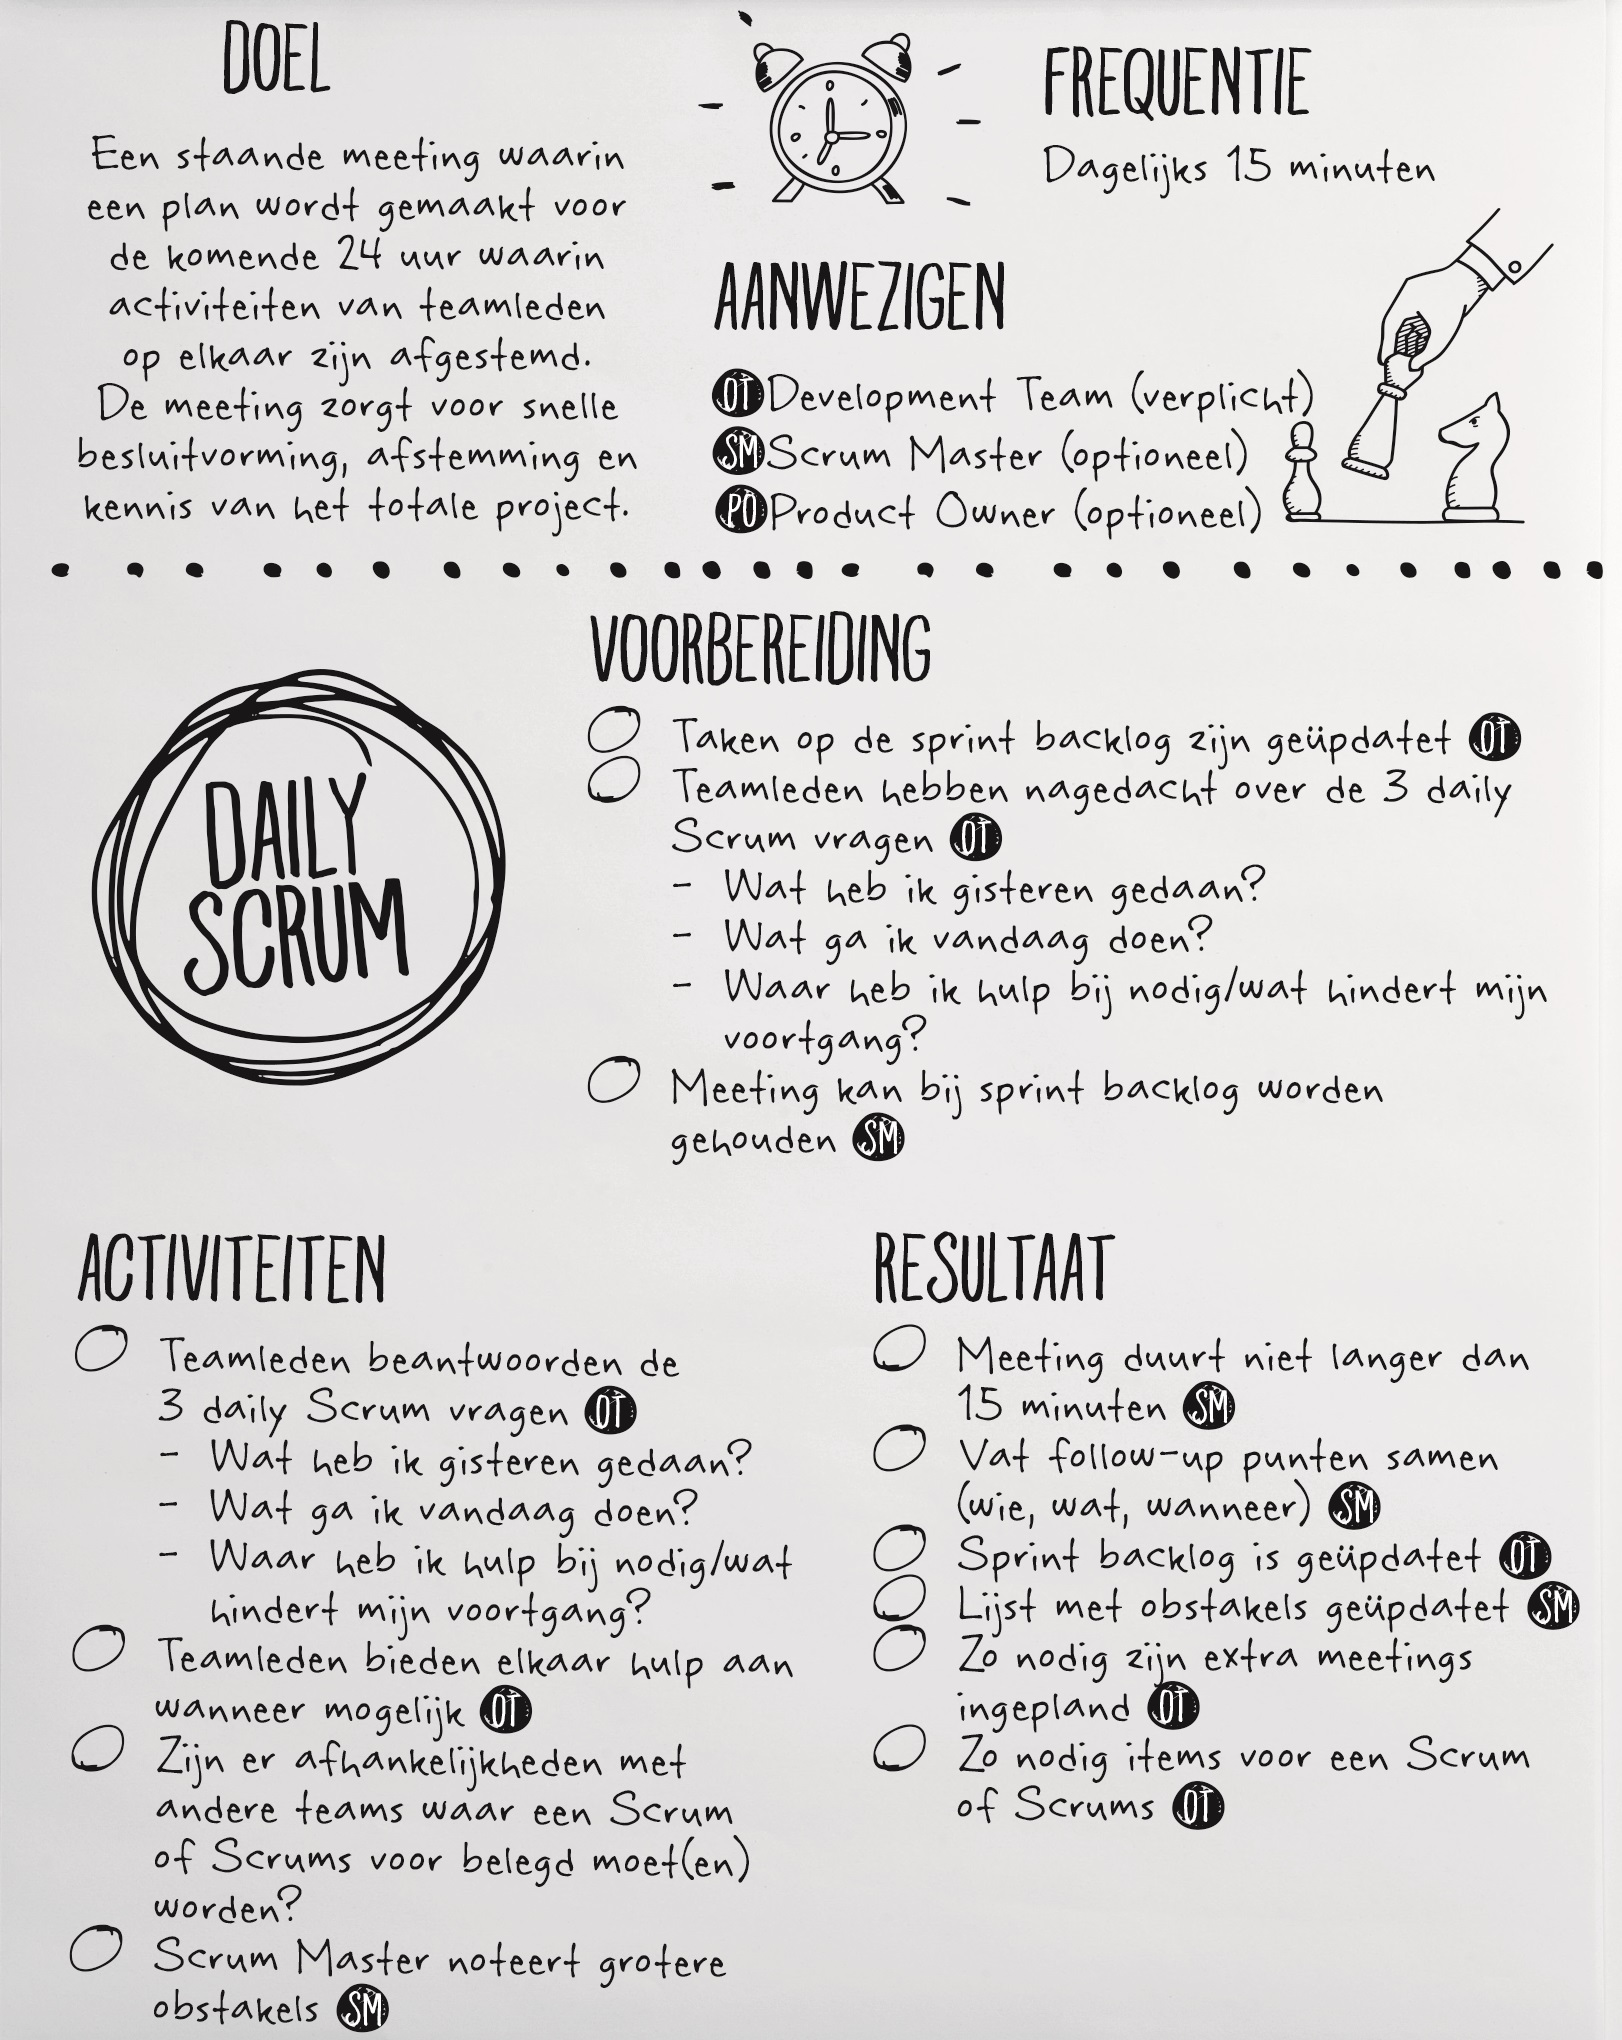 DOEL
Een staande meeting waarin
een plan wordt gemaakt voor
de komende 24 uur waarin
activiteiten van teamleden
op elkaar zijn afgestemd.
De meeting zorgt voor snelle
besluitvorming, afstemming en
kennis van het totale project.
FREQUENTIE
Dagelijks 15 minuten
AANWEZIGEN
OT Development Team (verplicht)
SM Scrum Master (optioneel)
PO Product Owner (optioneel)
DAILY
SCRUM
VOORBEREIDING
Taken op de sprint backlog zijn geüpdatet OT
Teamleden hebben nagedacht over de 3 daily
Scrum vragen OT
- Wat heb ik gisteren gedaan?
- Wat ga ik vandaag doen?
- Waar heb ik hulp bij nodig/wat hindert mijn
voortgang?
Meeting kan bij sprint backlog worden
gehouden SM
ACTIVITEITEN
Teamleden beantwoorden de
3 daily Scrum vragen OT
- Wat heb ik gisteren gedaan?
- Wat ga ik vandaag doen?
- Waar heb ik hulp bij nodig/wat
hindert mijn voortgang?
Teamleden bieden elkaar hulp aan
wanneer mogelijk OT
Zijn er afhankelijkheden met
andere teams waar een Scrum
of Scrums voor belegd moet(en)
worden?
Scrum Master noteert grotere
obstakels SM
RESULTAAT
Meeting duurt niet langer dan
15 minuten SM
Vat follow-up punten samen
(wie, wat, wanneer) SM
Sprint backlog is geüpdatet OT
Lijst met obstakels geüpdatet SM
Zo nodig zijn extra meetings
ingepland OT
Zo nodig items voor een Scrum
of Scrums OT